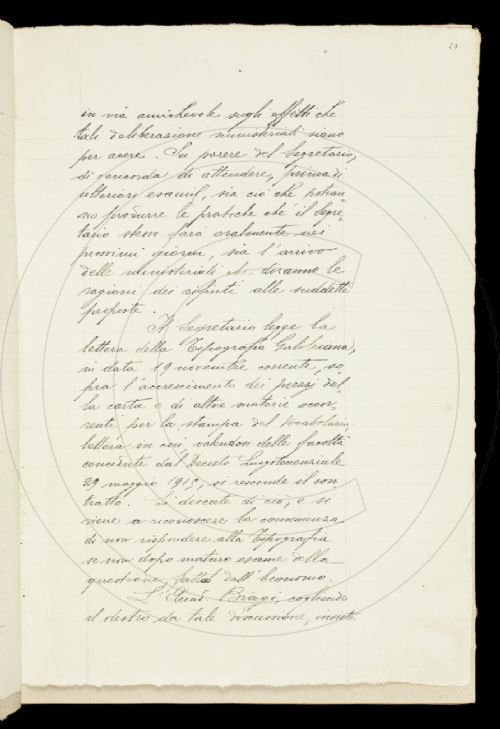 29
in via amichevole sugli effetti che
tali deliberazione ministeriali siano
per avere. Su parere del Segretario,
si concorda di attendere, prima di
ulteriori esami, sia ciò che potran=
no produrre le pratiche che il Segre=
tario stesso farà oralmente nei
prossimi giorni, sia l'arrivo
delle ministeriali che daranno le
ragioni dei rifiuti alle suddette
proposte.
Il Segretario legge la
lettera della Tipografia Galileiana,
in data 19 novembre corrente, so=
pra l'accrescimento dei prezzi del=
la carta e di altre materie occor=
renti per la stampa del Vocabolario;
lettera in cui valendosi della facoltà
concedute dal Decreto Luogotenenziale
29 maggio 1917, si rescinde il con
tratto. Si discute di ciò, e si
viene a riconoscere la convenienza
di non rispondere alla Tipografia
se non dopo maturo esame della
questione, fatto dall'Economo.
L'Accad. Biagi, cogliendo
il destro da tale discussione, insiste